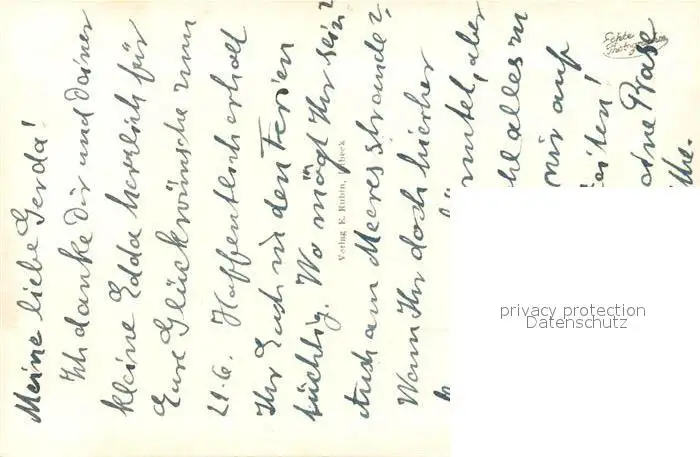 Meine liebe Gerda!
Ich danke dir und deiner
kleine Edda herzlich für
Eure Glückwünsche zum
21.6. Hoffentlich erholt
Ihr Euch in den Ferien
tüchtig. Wo mögt Ihr sein?
Auch am Meeresstrande?
Wenn Ihr doch hierher
aber
alles zu
mir auf
Base
Verlag E. Rubin,
Echte
privacy protection
Datenschutz